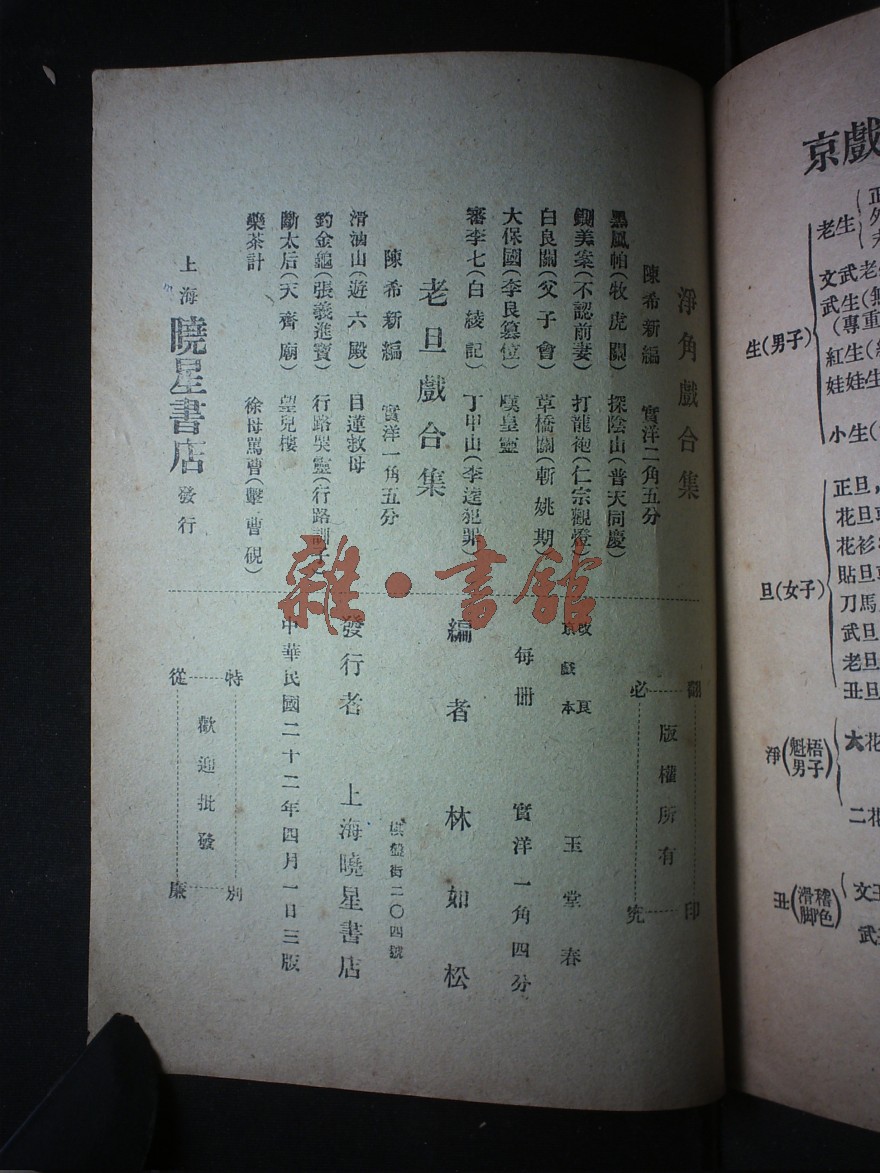 淨角戲合集
陳希新編　實洋二角五分
黑風帕(牧虎關)　探陰山(普天同慶)
鍘美案(不認前妻)　打龍袍(仁宗觀燈)
白良關(父子會)　草橋關(斬姚期)
大保國(李良篡位)　嘆皇靈
審李七(白綾記)　丁甲山(李逵犯罪)
老旦戲合集
陳希新編　實洋一角五分
滑油山(遊六殿)　目蓮救母
釣金龜(張義進寶)　行路哭靈(行路訓子)
斷太后(天齊廟)　望兒樓
藥茶計　徐母罵曹(擊曹硯)
上海曉星書店發行
翻印
版權所有
必究
改良
京戲本　玉堂春
每冊　實洋一角四分
編者　林如松
棋盤街二〇四號
發行者　上海曉星書店
中華民國二十二年四月一日三版
特別
歡迎批發
從廉
雜·書館
京戲
生(男子)
老生
正
文武老
武生
(專重
紅生
娃娃生
小生
旦(女子)
正旦,
花旦
花衫
貼旦
刀馬
武旦
老旦
丑旦
淨(魁梧男子)
大花
二花
丑(滑稽腳色)
文
武